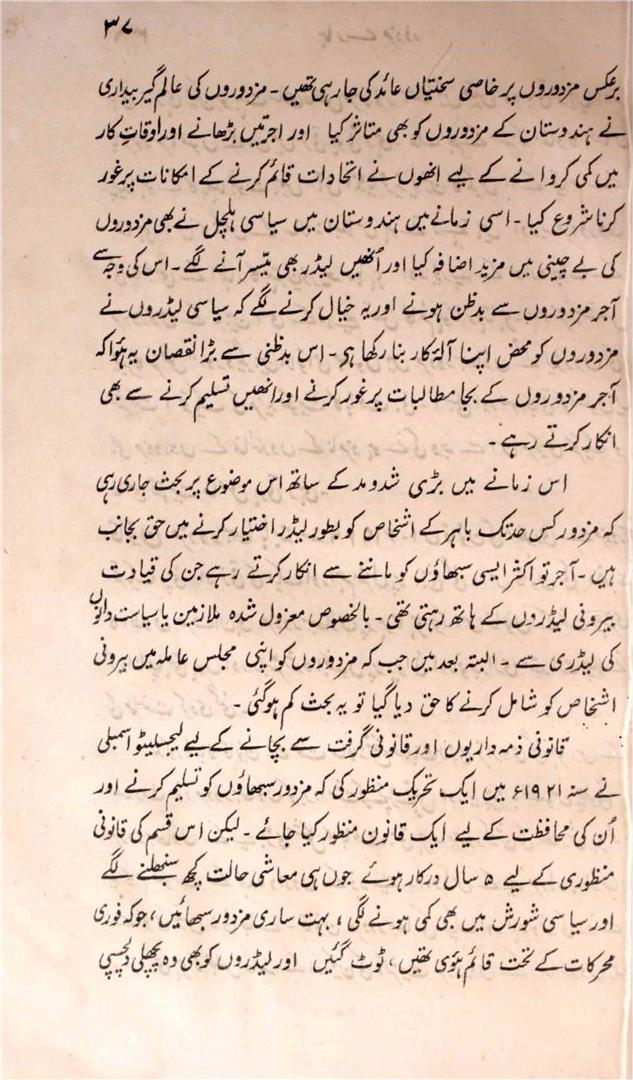 ۳۷
برعکس مزدوروں پر خاصی سختیاں عائد کی جا رہی تھیں ۔ مزدوروں کی عالم گیر بیداری
نے ہندوستان کے مزدوروں کو بھی متاثر کیا اور اجرتیں بڑھانے اور اوقاتِ کار
میں کمی کروانے کے لیے انھوں نے اتحادات قائم کرنے کے امکانات پر غور
کرنا شروع کیا ۔ اسی زمانے میں ہندوستان میں سیاسی ہلچل نے بھی مزدوروں
کی بے چینی میں مزید اضافہ کیا اور انھیں لیڈر بھی میّسر آنے لگے ۔ اس کی وجہ سے
آجر مزدوروں سے بدظن ہونے اور یہ خیال کرنے لگے کہ سیاسی لیڈروں نے
مزدوروں کو محض اپنا آلۂ کار بنا رکھا ہو ۔ اس بدظنی سے بڑا نقصان یہ ہوٗا کہ
آجر مزدوروں کے بجا مطالبات پر غور کرنے اور انھیں تسلیم کرنے سے بھی
انکار کرتے رہے ۔
اس زمانے میں بڑی شدومد کے ساتھ اس موضوع پر بحث جاری رہی
کہ مزدور کس حد تک باہر کے اشخاص کو بطور لیڈر اختیار کرنے میں حق بجانب
ہیں ۔ آجر تو اکثر ایسی سبھاؤں کو ماننے سے انکار کرتے رہے جن کی قیادت
بیرونی لیڈروں کے ہاتھ رہتی تھی ۔ بالخصوص معزول شدہ ملازمین یا سیاست دانوں
کی لیڈری سے ۔ البتہ بعد میں جب کہ مزدوروں کو اپنی مجلس عاملہ میں بیرونی
اشخاص کو شامل کرنے کا حق دیا گیا تو یہ بحث کم ہوگئی ۔
قانونی ذمہ داریوں اور قانونی گرفت سے بچانے کے لیے لیجسلیٹو اسمبلی
نے سنہ ۱۹۲۱ء میں ایک تحریک منظور کی کہ مزدور سبھاؤں کو تسلیم کرنے اور
اُن کی محافظت کے لیے ایک قانون منظور کیا جائے ۔ لیکن اس قسم کی قانونی
منظوری کے لیے ۵ سال درکار ہوئے جوں ہی معاشی حالت کچھ سنبھلنے لگے
اور سیاسی شورش میں بھی کمی ہونے لگی ، بہت ساری مزدور سبھائیں ، جو کہ فوری
محرکات کے تحت قائم ہوٗی تھیں ، ٹوٹ گئیں اور لیڈروں کو بھی وہ پچھلی دلچسپی